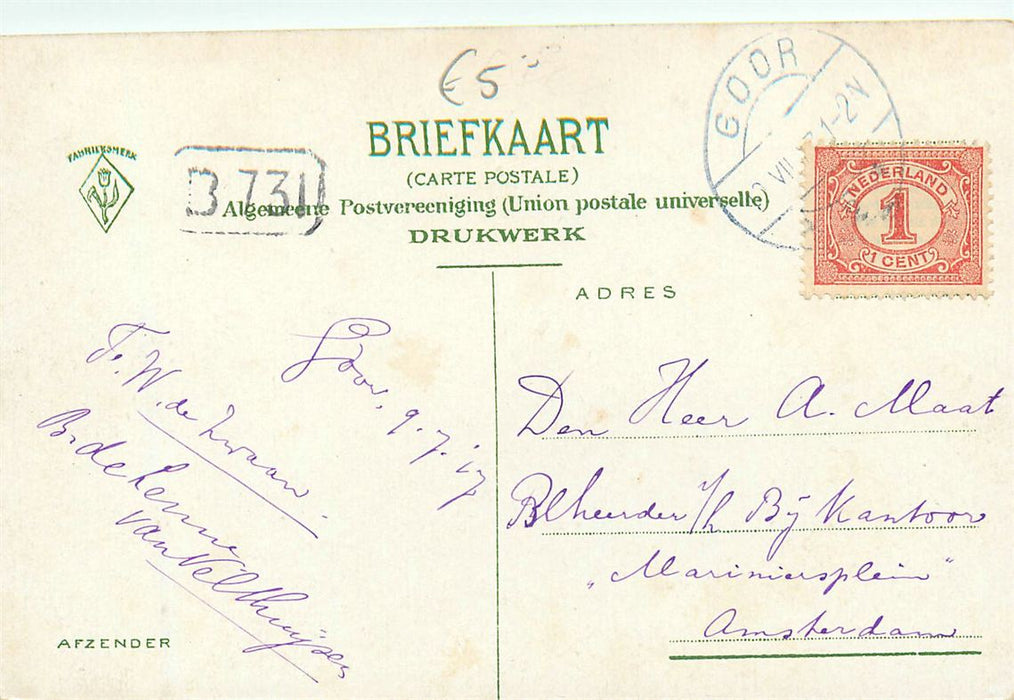 €5
GOOR
1-2 N
VII
FABRIEKSMERK
BRIEFKAART
(CARTE POSTALE)
B 731
Algemeene Postvereeniging (Union postale universelle)
DRUKWERK
NEDERLAND
1
1 CENT
ADRES
Goor, 9.7.17
F. W. de Zwaan.
B. de Lenne
van Velthuijsen
Den Heer A. Maat
Blheerder i/h Bij Kantoor
„Mariniersplein"
Amsterdam
AFZENDER